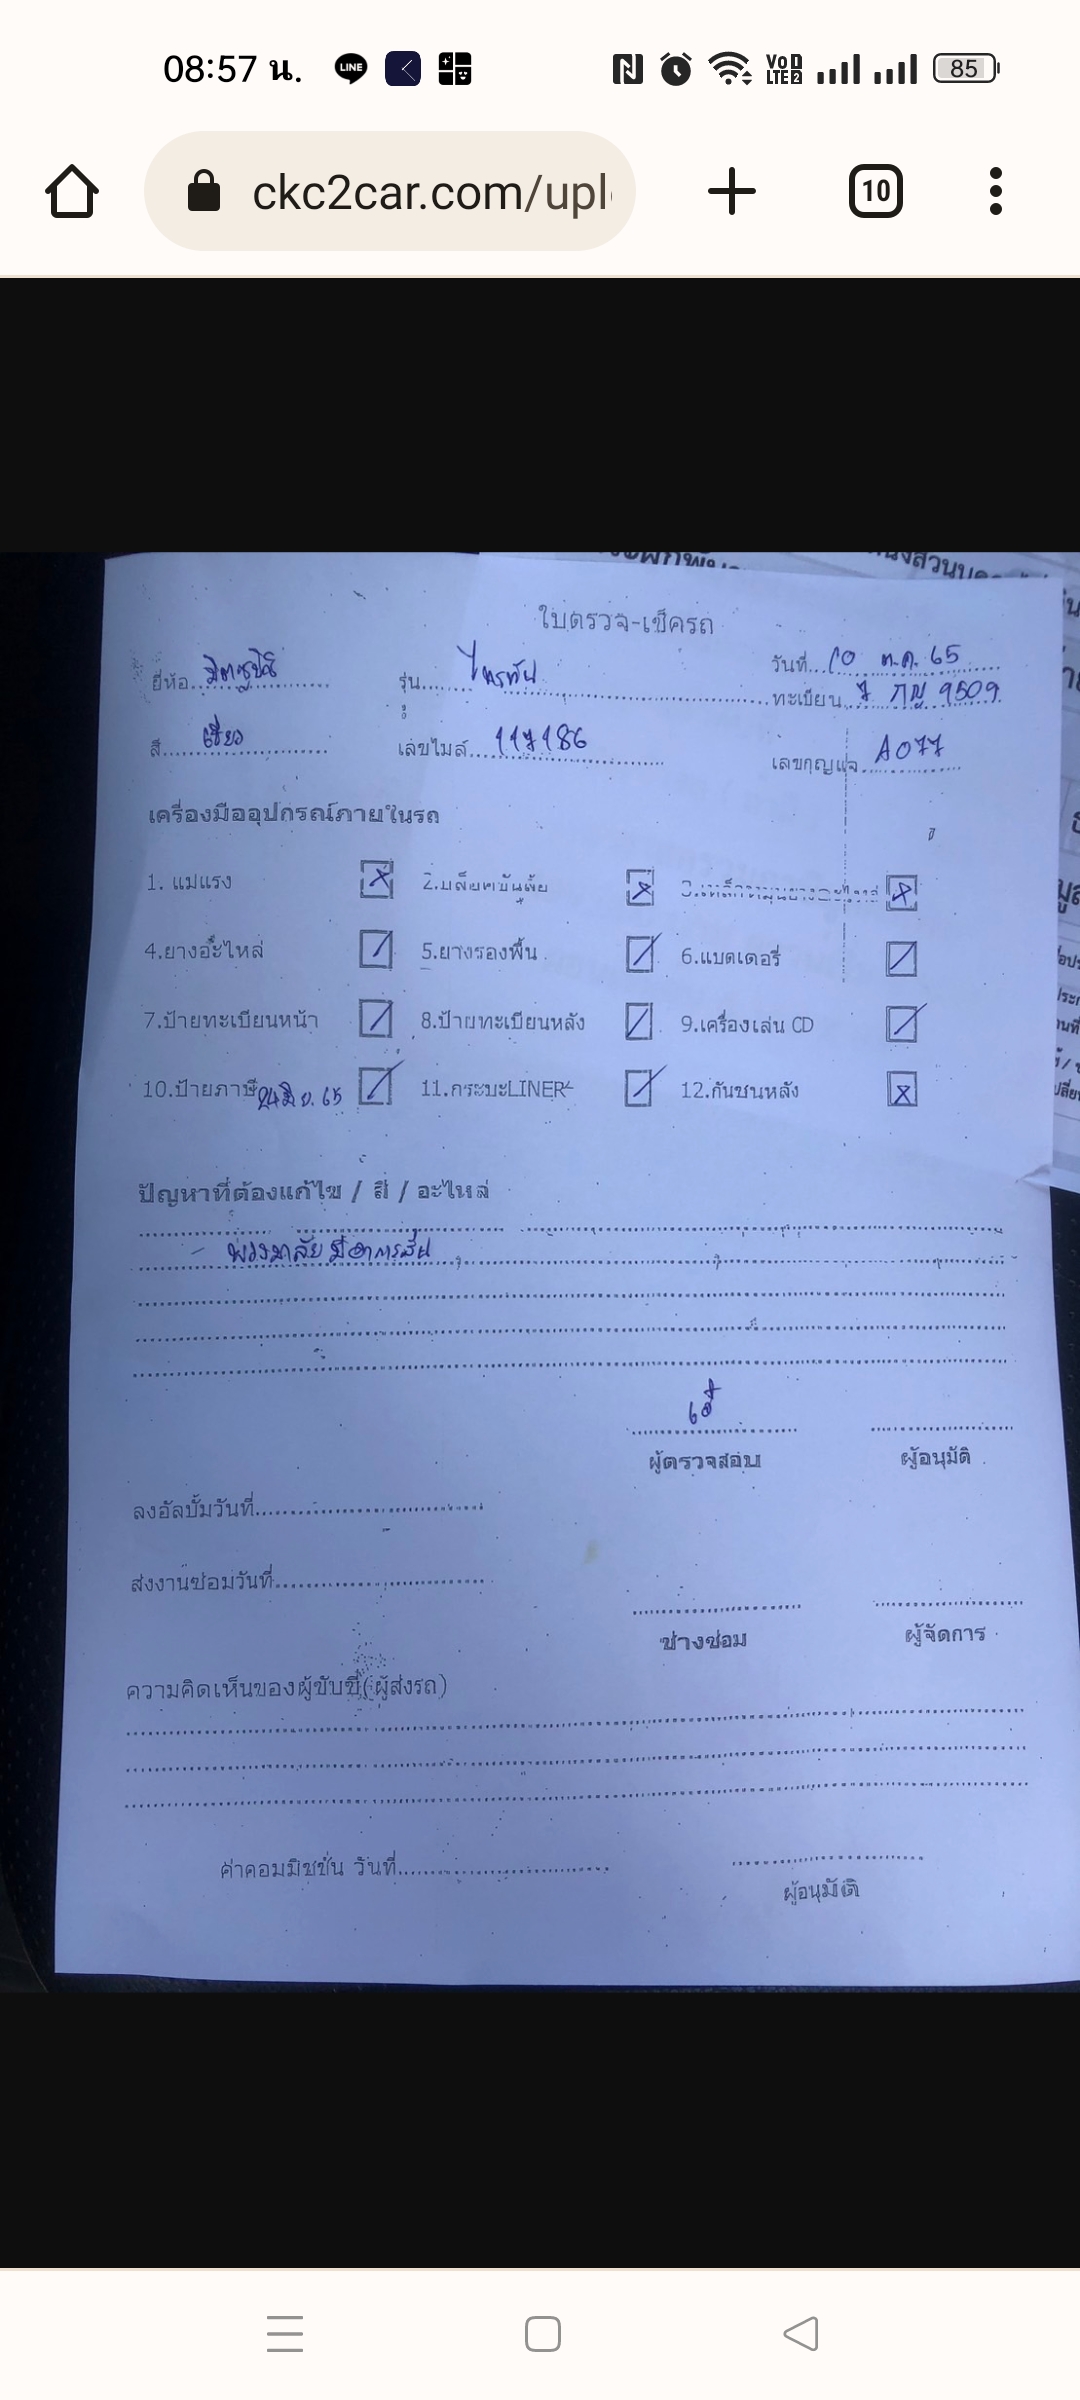 08:57 น. LINE VoLTE2 85
ckc2car.com/upl 10
ใบตรวจ-เช็ครถ
ยี่ห้อ มิตซูบิชิ รุ่น ไทรทัน วันที่ 10 ต.ค. 65
ทะเบียน 7 กญ 9509
สี เขียว เลขไมล์ 117186 เลขกุญแจ A077
เครื่องมืออุปกรณ์ภายในรถ
1. แม่แรง 2.บล็อคขันล้อ
4.ยางอะไหล่ 5.ยางรองพื้น 6.แบตเตอรี่
7.ป้ายทะเบียนหน้า 8.ป้ายทะเบียนหลัง 9.เครื่องเล่น CD
10.ป้ายภาษี 24 มิ.ย. 65 11.กระบะLINER 12.กันชนหลัง
ปัญหาที่ต้องแก้ไข / สี / อะไหล่
- พวงมาลัยมีอาการสั่น
ผู้ตรวจสอบ ผู้อนุมัติ
ลงอัลบั้มวันที่
ส่งงานซ่อมวันที่
ช่างซ่อม ผู้จัดการ
ความคิดเห็นของผู้ขับขี่(ผู้ส่งรถ)
ค่าคอมมิชชั่น วันที่
ผู้อนุมัติ